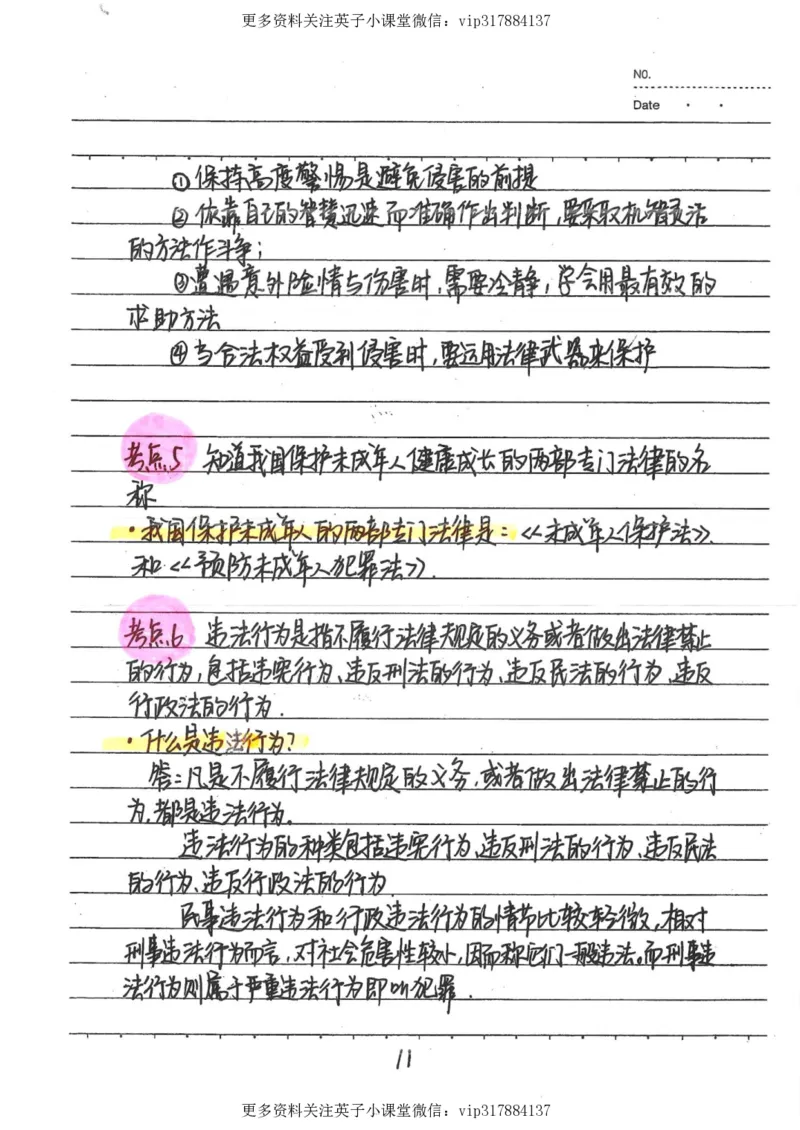 更多资料关注英子小课堂微信：vip317884137
NO.
Date
①保持高度警惕是避免侵害的前提
②依靠自己的智慧迅速而准确作出判断,要采取机智灵活
的方法作斗争；
③遭遇意外险情与伤害时,需要冷静,学会用最有效的
求助方法
④当合法权益受到侵害时,要运用法律武器来保护
考点5 知道我国保护未成年人健康成长的两部专门法律的名
称
·我国保护未成年人的两部专门法律是：《未成年人保护法》.
和《预防未成年人犯罪法》.
考点6 违法行为是指不履行法律规定的义务或者做出法律禁止
的行为,包括违宪行为、违反刑法的行为、违反民法的行为、违反
行政法的行为.
·什么是违法行为?
答：凡是不履行法律规定的义务,或者做出法律禁止的行
为,都是违法行为.
违法行为的种类包括违宪行为、违反刑法的行为、违反民法
的行为、违反行政法的行为.
民事违法行为和行政违法行为的情节比较轻微,相对
刑事违法行为而言,对社会危害性较小,因而称它们一般违法。而刑事违
法行为则属于严重违法行为即叫犯罪.
11
更多资料关注英子小课堂微信：vip317884137